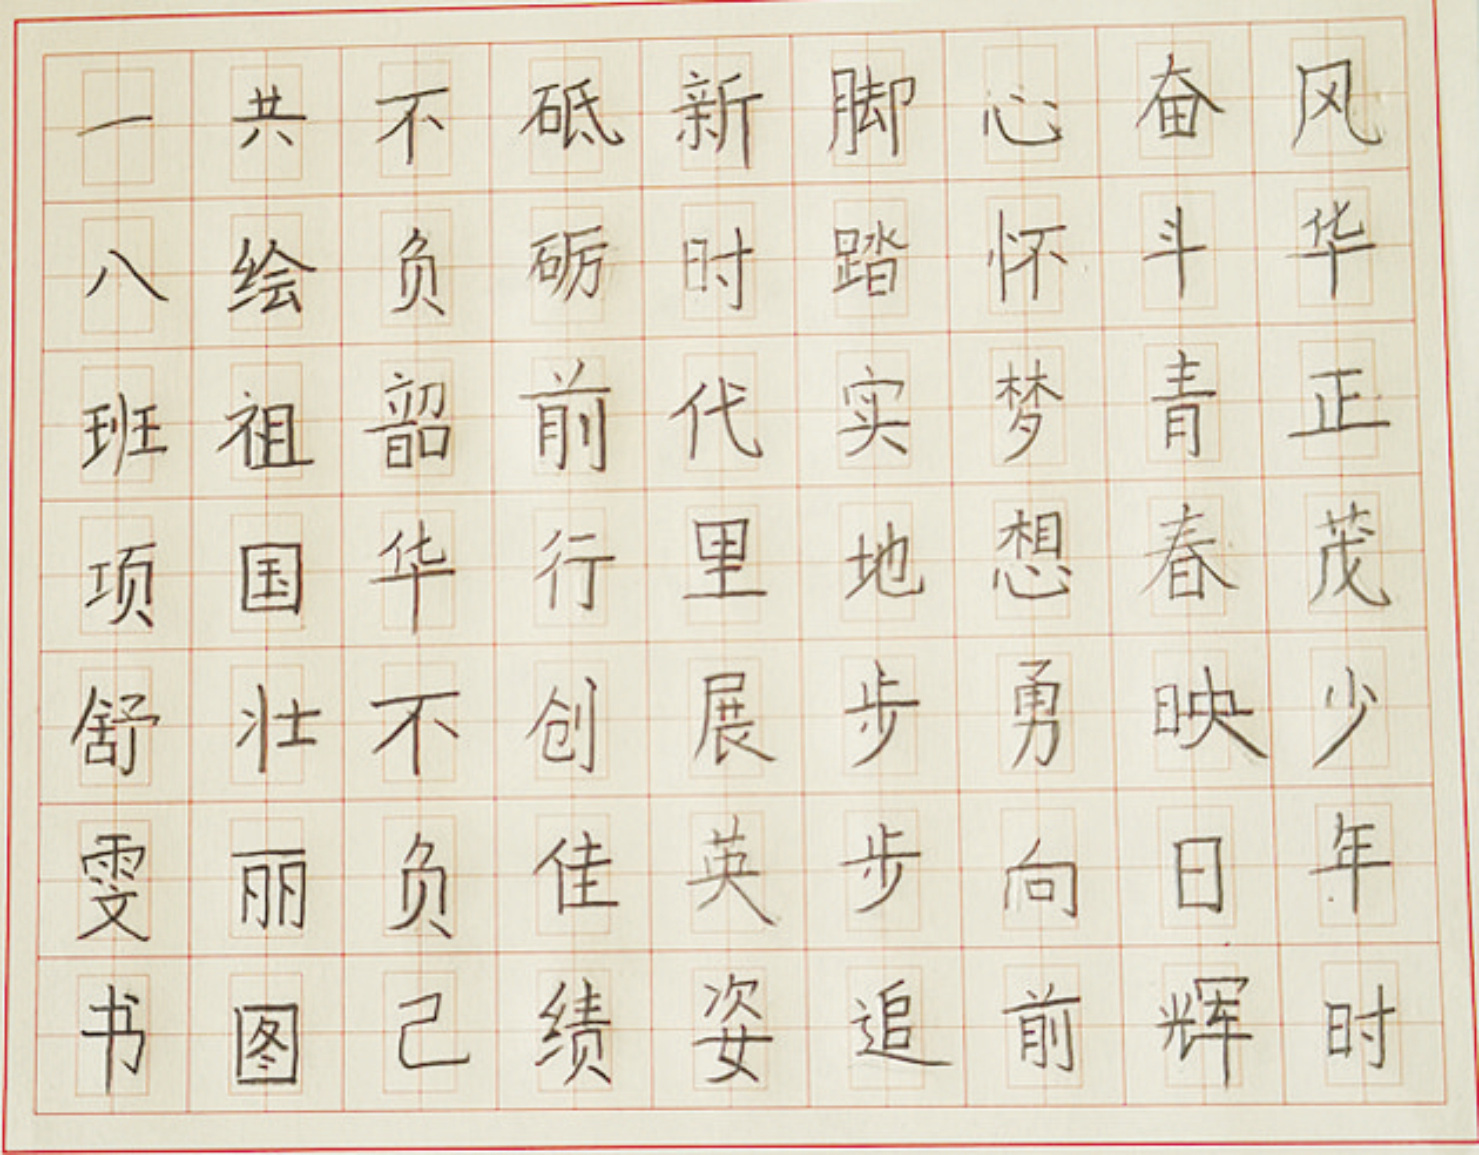 风华正茂少年时
奋斗青春映日辉
心怀梦想勇向前
脚踏实地步步追
新时代里展英姿
砥砺前行创佳绩
不负韶华不负己
共绘祖国壮丽图
一八班项舒雯书